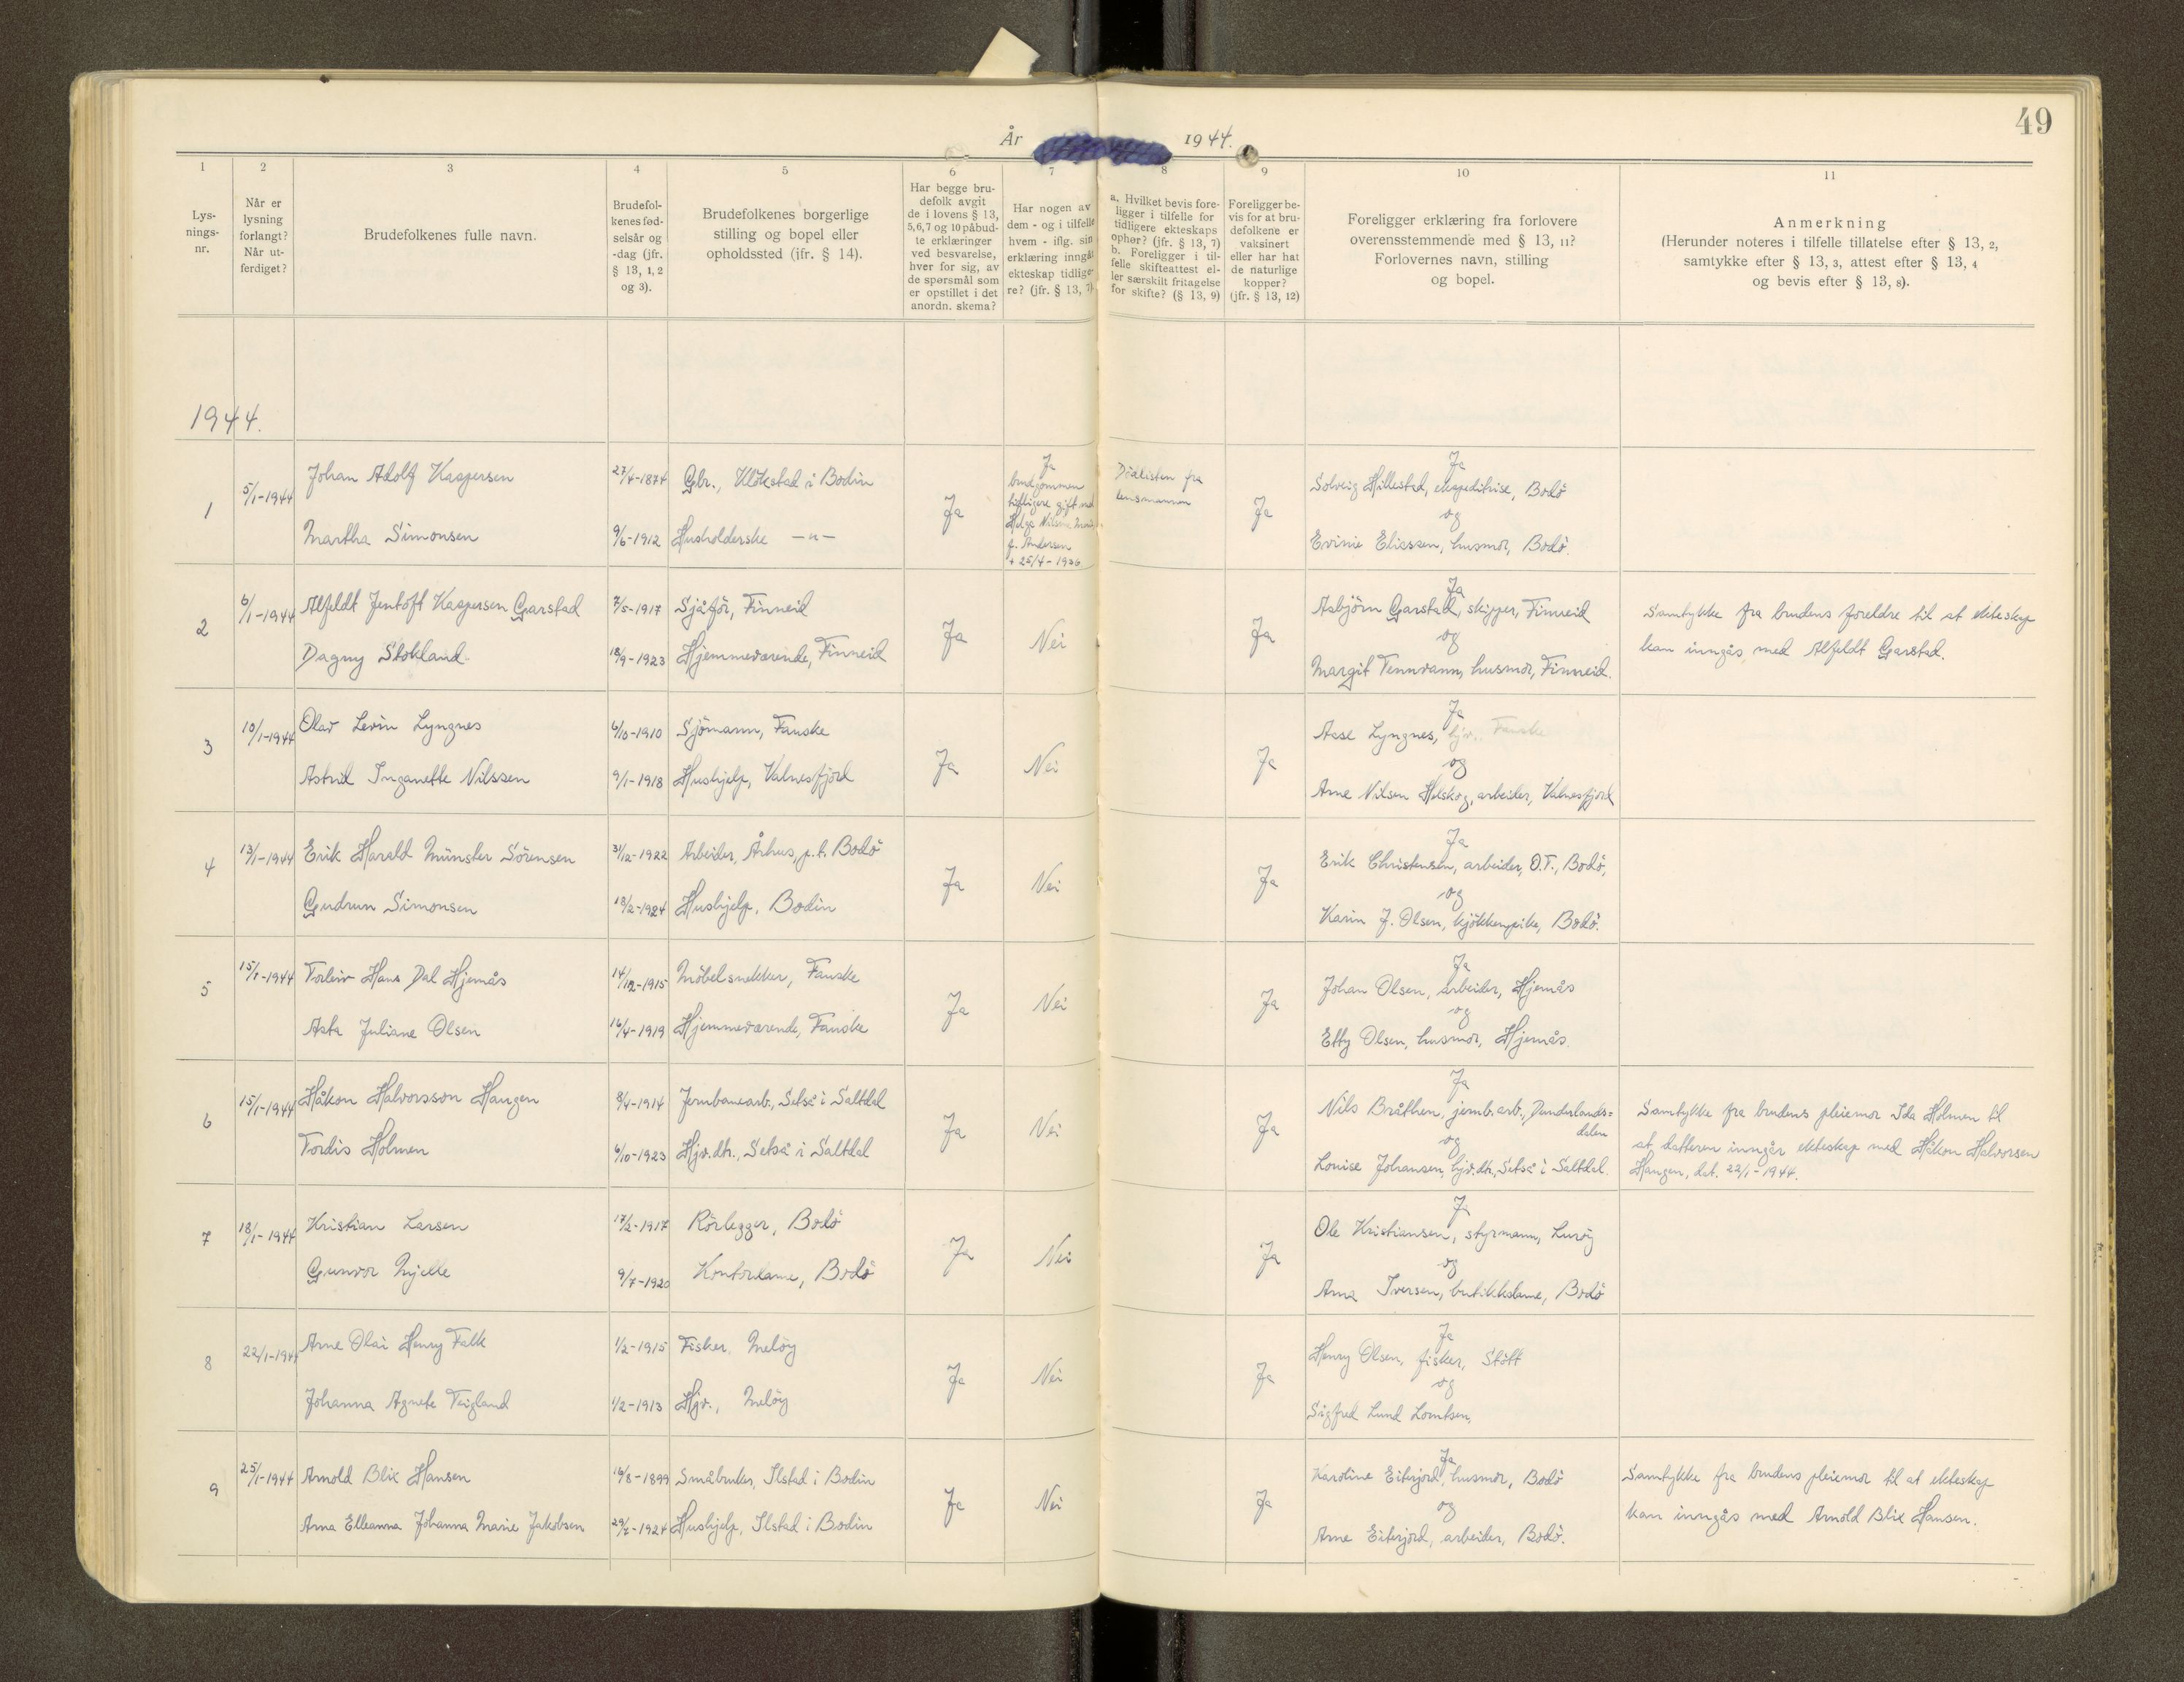 49
År 1944.
1
Lys-
nings-
nr.
2
Når er
lysning
forlangt?
Når ut-
ferdiget?
3
Brudefolkenes fulle navn.
4
Brudefol-
kenes fød-
selsår og
-dag (jfr.
§ 13, 1, 2
og 3).
5
Brudefolkenes borgerlige
stilling og bopel eller
opholdssted (jfr. § 14).
6
Har begge bru-
defolk avgit
de i lovens § 13,
5, 6, 7 og 10 påbud-
te erklæringer
ved besvarelse,
hver for sig, av
de spørsmål som
er opstillet i det
anordn. skema?
7
Har nogen av
dem - og i tilfelle
hvem - iflg. sin
erklæring inngått
ekteskap tidlige-
re? (jfr. § 13, 7)
8
a. Hvilket bevis fore-
ligger i tilfelle for
tidligere ekteskaps
ophør? (jfr. § 13, 7)
b. Foreligger i til-
felle skifteattest el-
ler særskilt fritagelse
for skifte? (§ 13, 9)
9
Foreligger be-
vis for at bru-
defolkene er
vaksinert
eller har hat
de naturlige
kopper?
(jfr. § 13, 12)
10
Foreligger erklæring fra forlovere
overensstemmende med § 13, 11?
Forlovernes navn, stilling
og bopel.
11
Anmerkning
(Herunder noteres i tilfelle tillatelse efter § 13, 2,
samtykke efter § 13, 3, attest efter § 13, 4
og bevis efter § 13, 8).
1944.
1
5/1-1944
Johan Adolf Kaspersen
Martha Simonsen
27/4-1874
9/6-1912
Gbr., Klökstad i Bodin
Husholderske —"—
Ja
Ja
brudgommen
tidligere gift med
Helga
f. Andersen
+ 25/4-1936
Dödlisten fra
lensmannen
Ja
Ja
Solveig Hillestad, ekspeditrise, Bodö
og
Evinie Eliassen, husmor, Bodö.
2
6/1-1944
Alfeldt Jentoft Kaspersen Garstad
Dagny Stokland
7/5-1917
18/9-1923
Sjåför, Finneid
Hjemmeværende, Finneid
Ja
Nei
Ja
Ja
Asbjörn Garstad, skipper, Finneid
og
Margit Tennvann, husmor, Finneid.
Samtykke fra brudens foreldre til at ekteskap
kan inngås med Alfeldt Garstad.
3
10/1-1944
Olav Levin Lyngnes
Astrid Inganette Nilssen
6/10-1910
9/1-1918
Sjömann, Fauske
Hushjelp, Valnesfjord
Ja
Nei
Ja
Ja
Aase Lyngnes, hjv. Fauske
og
Arne Nilsen Holskog, arbeider, Valnesfjord
4
13/1-1944
Erik Harald Münster Sörensen
Gudrun Simonsen
31/12-1922
18/2-1924
Arbeider, Århus, p.t. Bodö
Hushjelp, Bodin
Ja
Nei
Ja
Ja
Erik Christensen, arbeider, O.T., Bodö,
og
Karin J. Olsen, kjökkenpike, Bodö.
5
15/1-1944
Torleiv Hans Dal Hjemås
Asta Juliane Olsen
14/12-1915
16/4-1919
Möbelsnekker, Fauske
Hjemmeværende, Fauske
Ja
Nei
Ja
Ja
Johan Olsen, arbeider, Hjemås
og
Etty Olsen, husmor, Hjemås.
6
15/1-1944
Håkon Halvorsson Haugen
Tordis Holmen
8/4-1914
6/10-1923
Jernbanearb., Setså i Saltdal
Hjv.dtr., Setså i Saltdal
Ja
Nei
Ja
Ja
Nils Bråthen, jernb.arb., Dunderlands=
dalen
og
Louise Johansen, hjv.dtr., Setså i Saltdal.
Samtykke fra brudens pleiemor Ida Holmen til
at datteren inngår ekteskap med Håkon Halvorsen
Haugen, dat. 22/1-1944.
7
18/1-1944
Kristian Larsen
Gunvor Mjelle
17/2-1917
9/7-1920
Rörlegger, Bodö
Kontordame, Bodö
Ja
Nei
Ja
Ja
Ole Kristiansen, styrmann, Luröy
og
Arna Iversen, butikkdame, Bodö
8
22/1-1944
Arne Olai Henry Falk
Johanna Agnete Teigland
1/2-1915
1/2-1913
Fisker, Melöy
Hjv., Melöy
Ja
Nei
Ja
Ja
Henry Olsen, fisker, Stött
og
Sigfred Lund Lorntsen,
9
25/1-1944
Arnold Blix Hansen
Arna Elleanna Johanna Marie Jakobsen
16/8-1899
29/7-1924
Småbruker, Ilstad i Bodin
Hushjelp, Ilstad i Bodin
Ja
Nei
Ja
Ja
Karoline Eiterjord, husmor, Bodö
og
Arne Eiterjord, arbeider, Bodö.
Samtykke fra brudens pleiemor til at ekteskap
kan inngås med Arnold Blix Hansen.